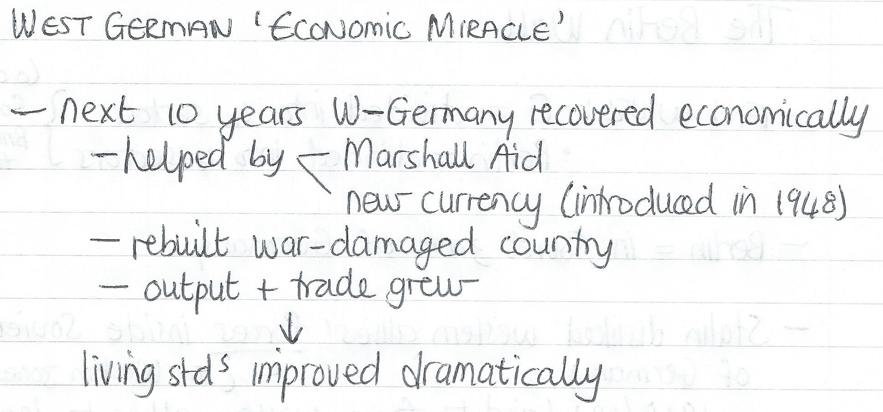 WEST GERMAN 'ECONOMIC MIRACLE'
- next 10 years W-Germany recovered economically
- helped by - Marshall Aid
new currency (introduced in 1948)
- rebuilt war-damaged country
- output + trade grew
↓
living stds improved dramatically